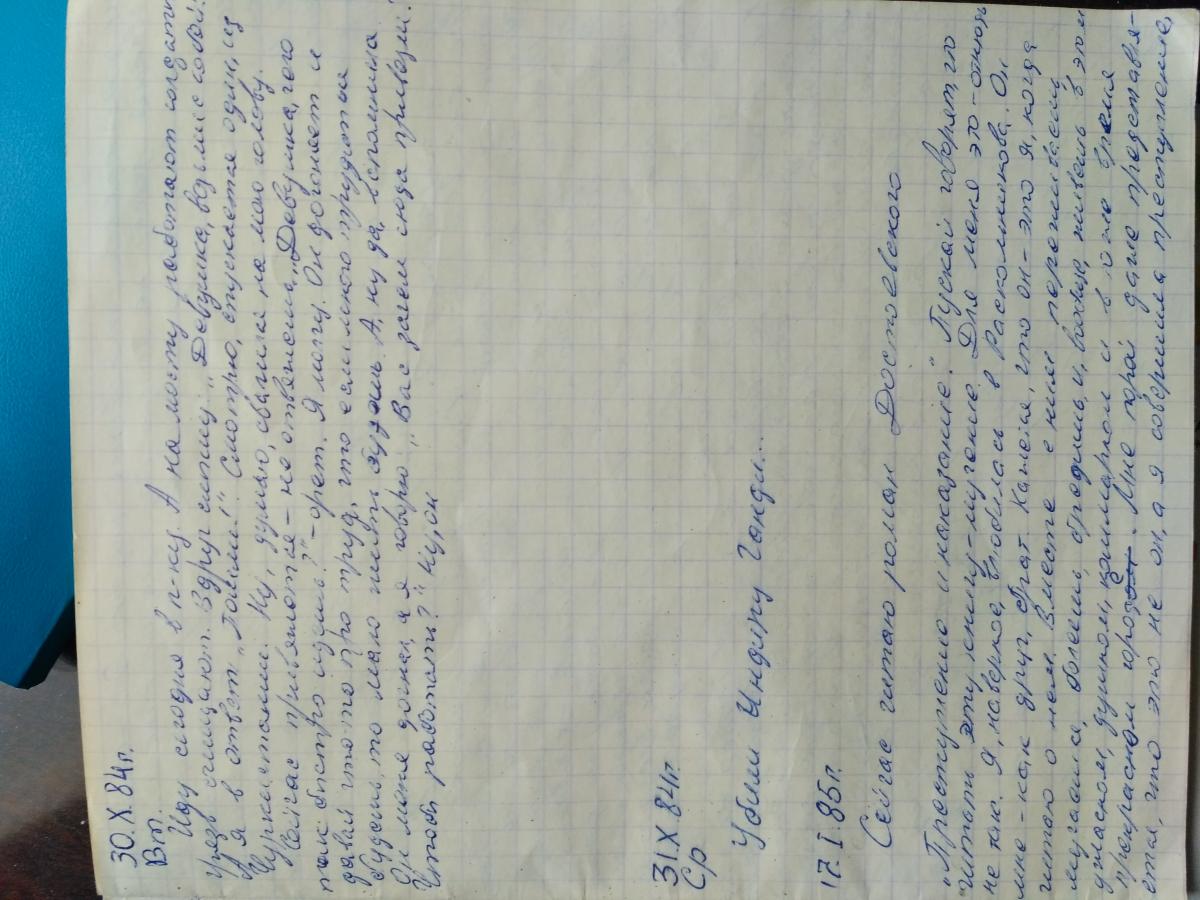 30.X.84г.
Вт.
Иду сегодня в п-ку. А на мосту работают солдаты
чищают. Вдруг слышу: „Девушка, возьми с собой!"
я в ответ: „Пошли!" Смотрю, спускается один, из
туркистании. Ну, думаю, свалился на мою голову.
Сейчас привяжется – не отвяжешь. „Девушка, чего
так быстро идешь?" – орет. Я молчу. Он догоняет и
давай что-то про труд, что если много трудиться
будешь, то мало жить будешь. А, ну да, вспомнила
Он меня догнал, а я говорю: „Вас зачем сюда привезли?
Чтоб работать?" Ну, он
31 X 84г.
Ср
Убили Индиру Ганди...
17. I. 85г.
Сейчас читаю роман Достоевского
„Преступление и наказание." Пускай говорят, что
читать эту книгу – мучение. Для меня это – отнюдь
не так. Я, наверное, влюбилась в Раскольникова. Он
мне – как друг, брат. Кажется, что он – это я, когда
читаю о нем. Вместе с ним переживаешь,
мучаешься, болеешь, бродишь, и, вообще, живешь в этом
ужасном, душном, кошмарном и в то же время
прекрасном городе. Мне порой даже представля-
ется, что это не он, а я совершила преступление,